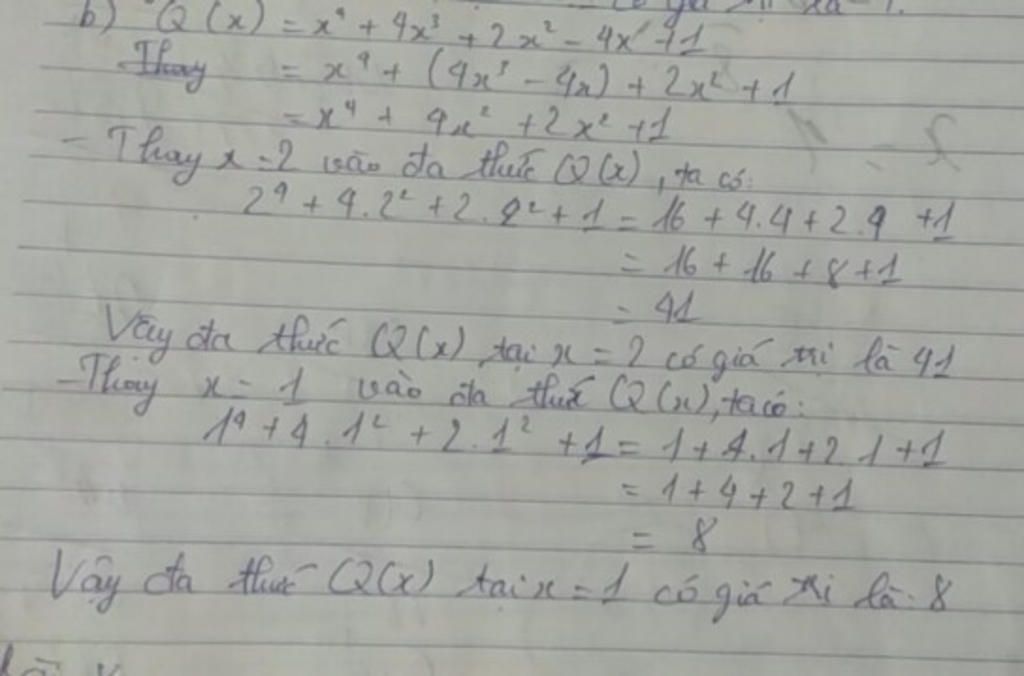 b) Q(x) = x⁴ + 4x³ + 2x² - 4x + 1
Thay = x⁴ + (4x³ - 4x) + 2x² + 1
= x⁴ + 4x² + 2x² + 1
- Thay x = 2 vào đa thức Q(x), ta có:
2⁴ + 4.2² + 2.2² + 1 = 16 + 4.4 + 2.4 + 1
= 16 + 16 + 8 + 1
= 41
Vậy đa thức Q(x) tại x = 2 có giá trị là 41
- Thay x = 1 vào đa thức Q(x), ta có:
1⁴ + 4.1² + 2.1² + 1 = 1 + 4.1 + 2 1 + 1
= 1 + 4 + 2 + 1
= 8
Vậy đa thức Q(x) tại x = 1 có giá trị là: 8